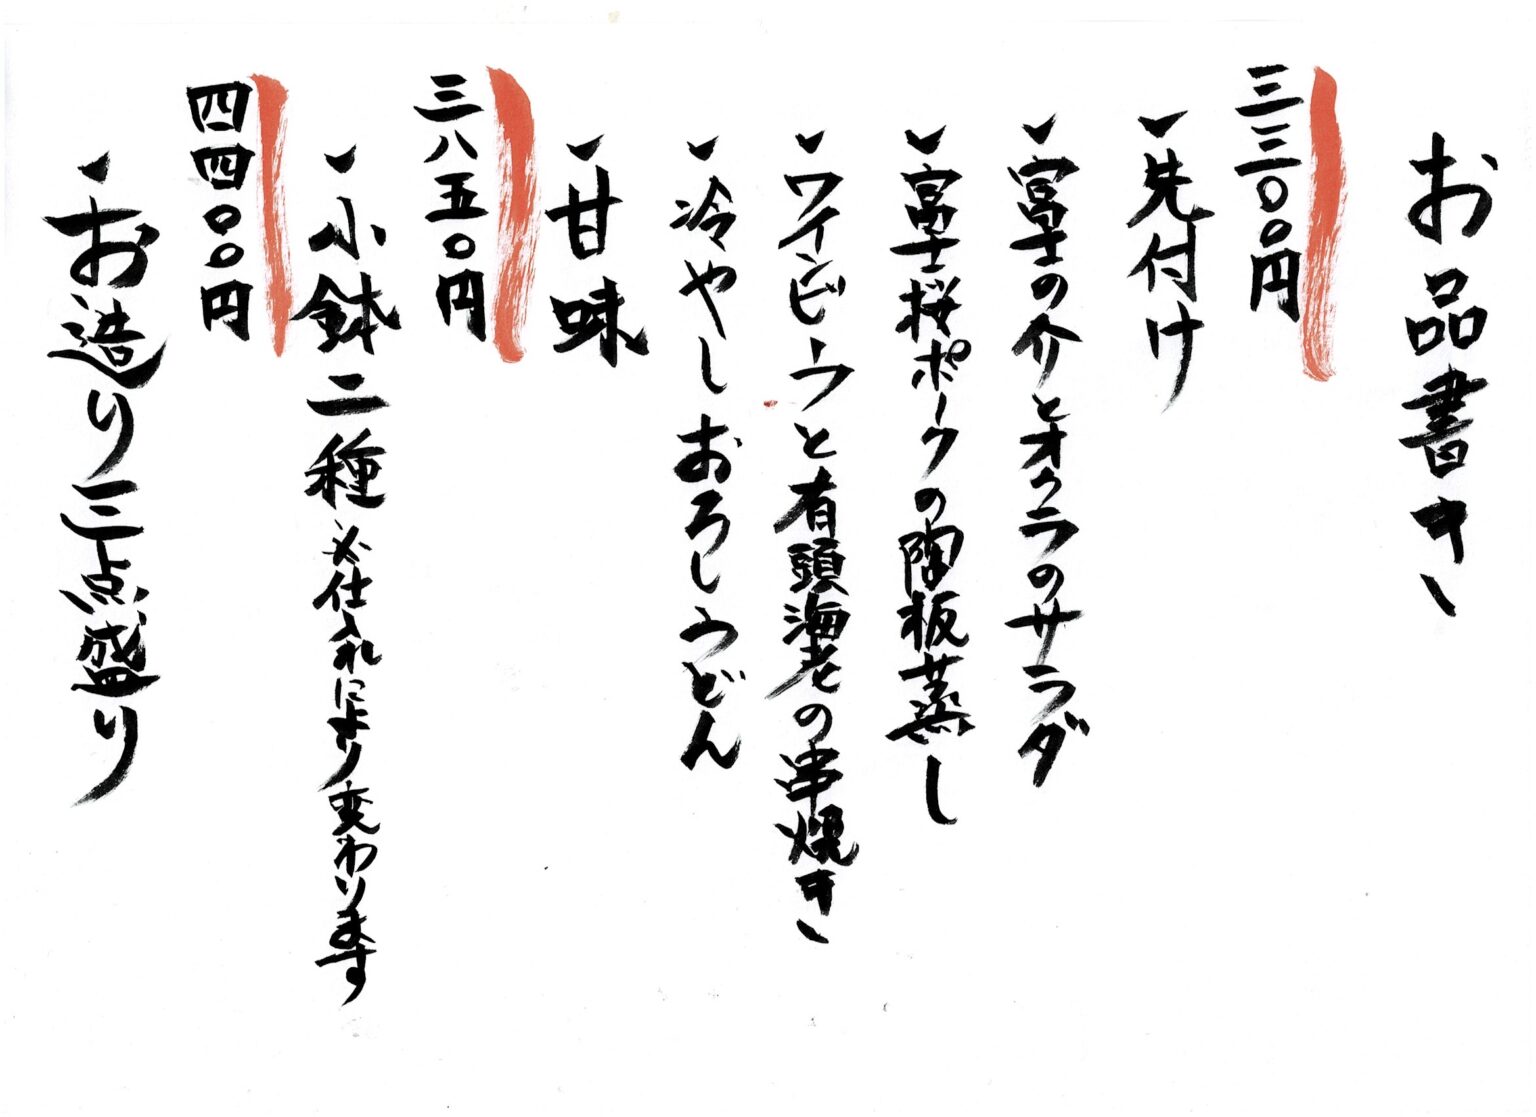 お品書き
三三〇〇円
・先付け
・富士の介とオクラのサラダ
・富士桜ポークの陶板蒸し
・ワインビーフと有頭海老の串焼き
・冷やしおろしうどん
・甘味
三八五〇円
・小鉢二種 ※仕入れにより変わります
四四〇〇円
・お造り三点盛り